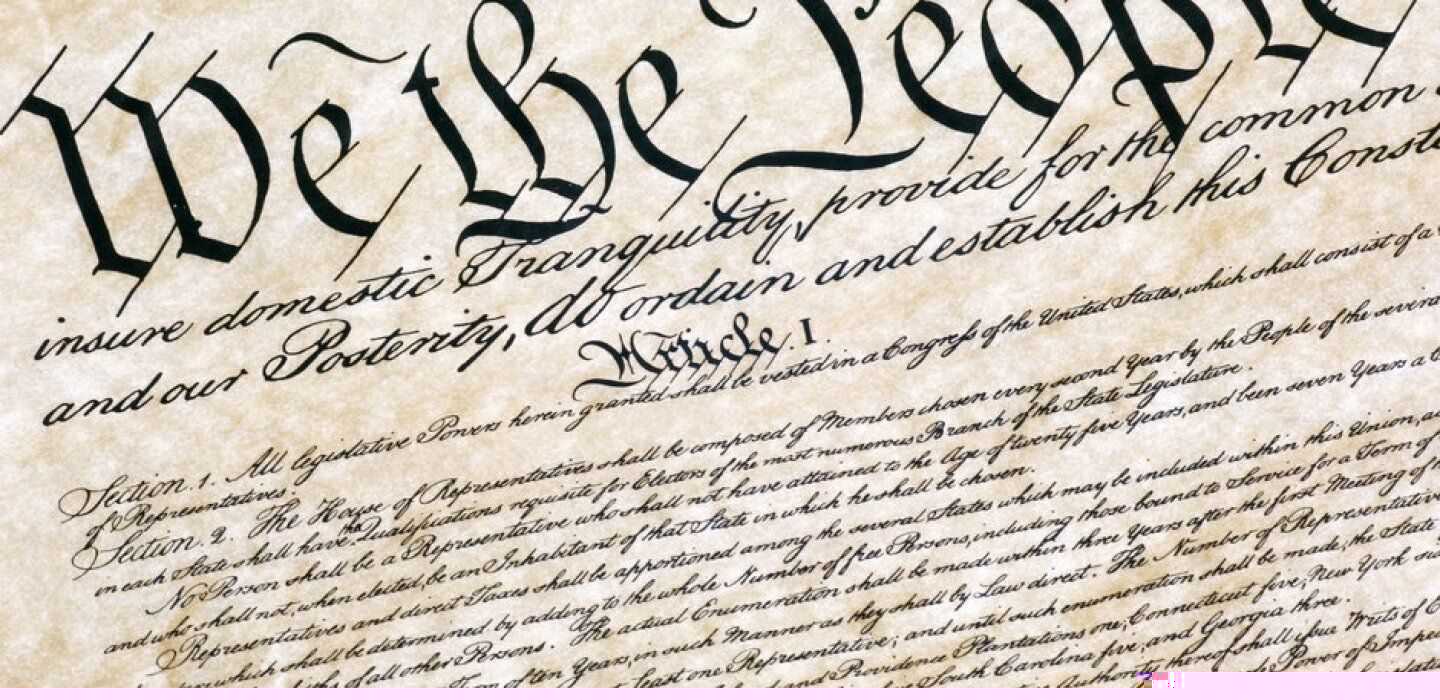 We the People
insure domestic Tranquility, provide for the common
and our Posterity, do ordain and establish this
Article. I.
Section. 1. All legislative Powers herein granted shall be vested in a Congress of the United States, which shall consist of a
of Representatives.
Section. 2. The House of Representatives shall be composed of Members chosen every second Year by the People of the
in each State shall have the Qualifications requisite for Electors of the most numerous Branch of the State Legislature.
No Person shall be a Representative who shall not have attained to the Age of twenty five Years, and been seven Years a
and who shall not, when elected, be an Inhabitant of that State in which he shall be chosen.
Representatives and direct Taxes shall be apportioned among the several States which may be included within this Union,
which shall be determined by adding to the whole Number of free Persons, including those bound to Service for a Term of
of all other Persons. The actual Enumeration shall be made within three Years after the first Meeting of
of ten Years, in such Manner as they shall by Law direct. The Number of
least one Representative; and until such enumeration shall be made, the State
and Providence Plantations one, Connecticut five, New York
South Carolina five, and Georgia three.
Authority thereof shall issue Writs of
Power of